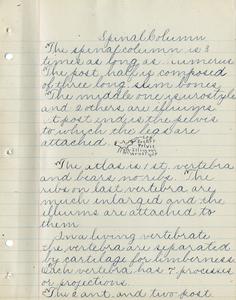 Spinal Column
The spinal column is 3
times as long as humerus
The post. half is composed
of three long slim bones
The middle one is urostyle
and 2 others are illiums.
post end is the pelves
to which the legs are
attached.
The atlas is 1st. vertibra
and bears no ribs. The
ribs on last vertebra are
much enlarged and the
illiums are attached to
them
In a living vertebrate
the vertebra are separated
by cartilage for limberness.
Each vertebra has 7 processes
or projections.
The 2 ant. and two post